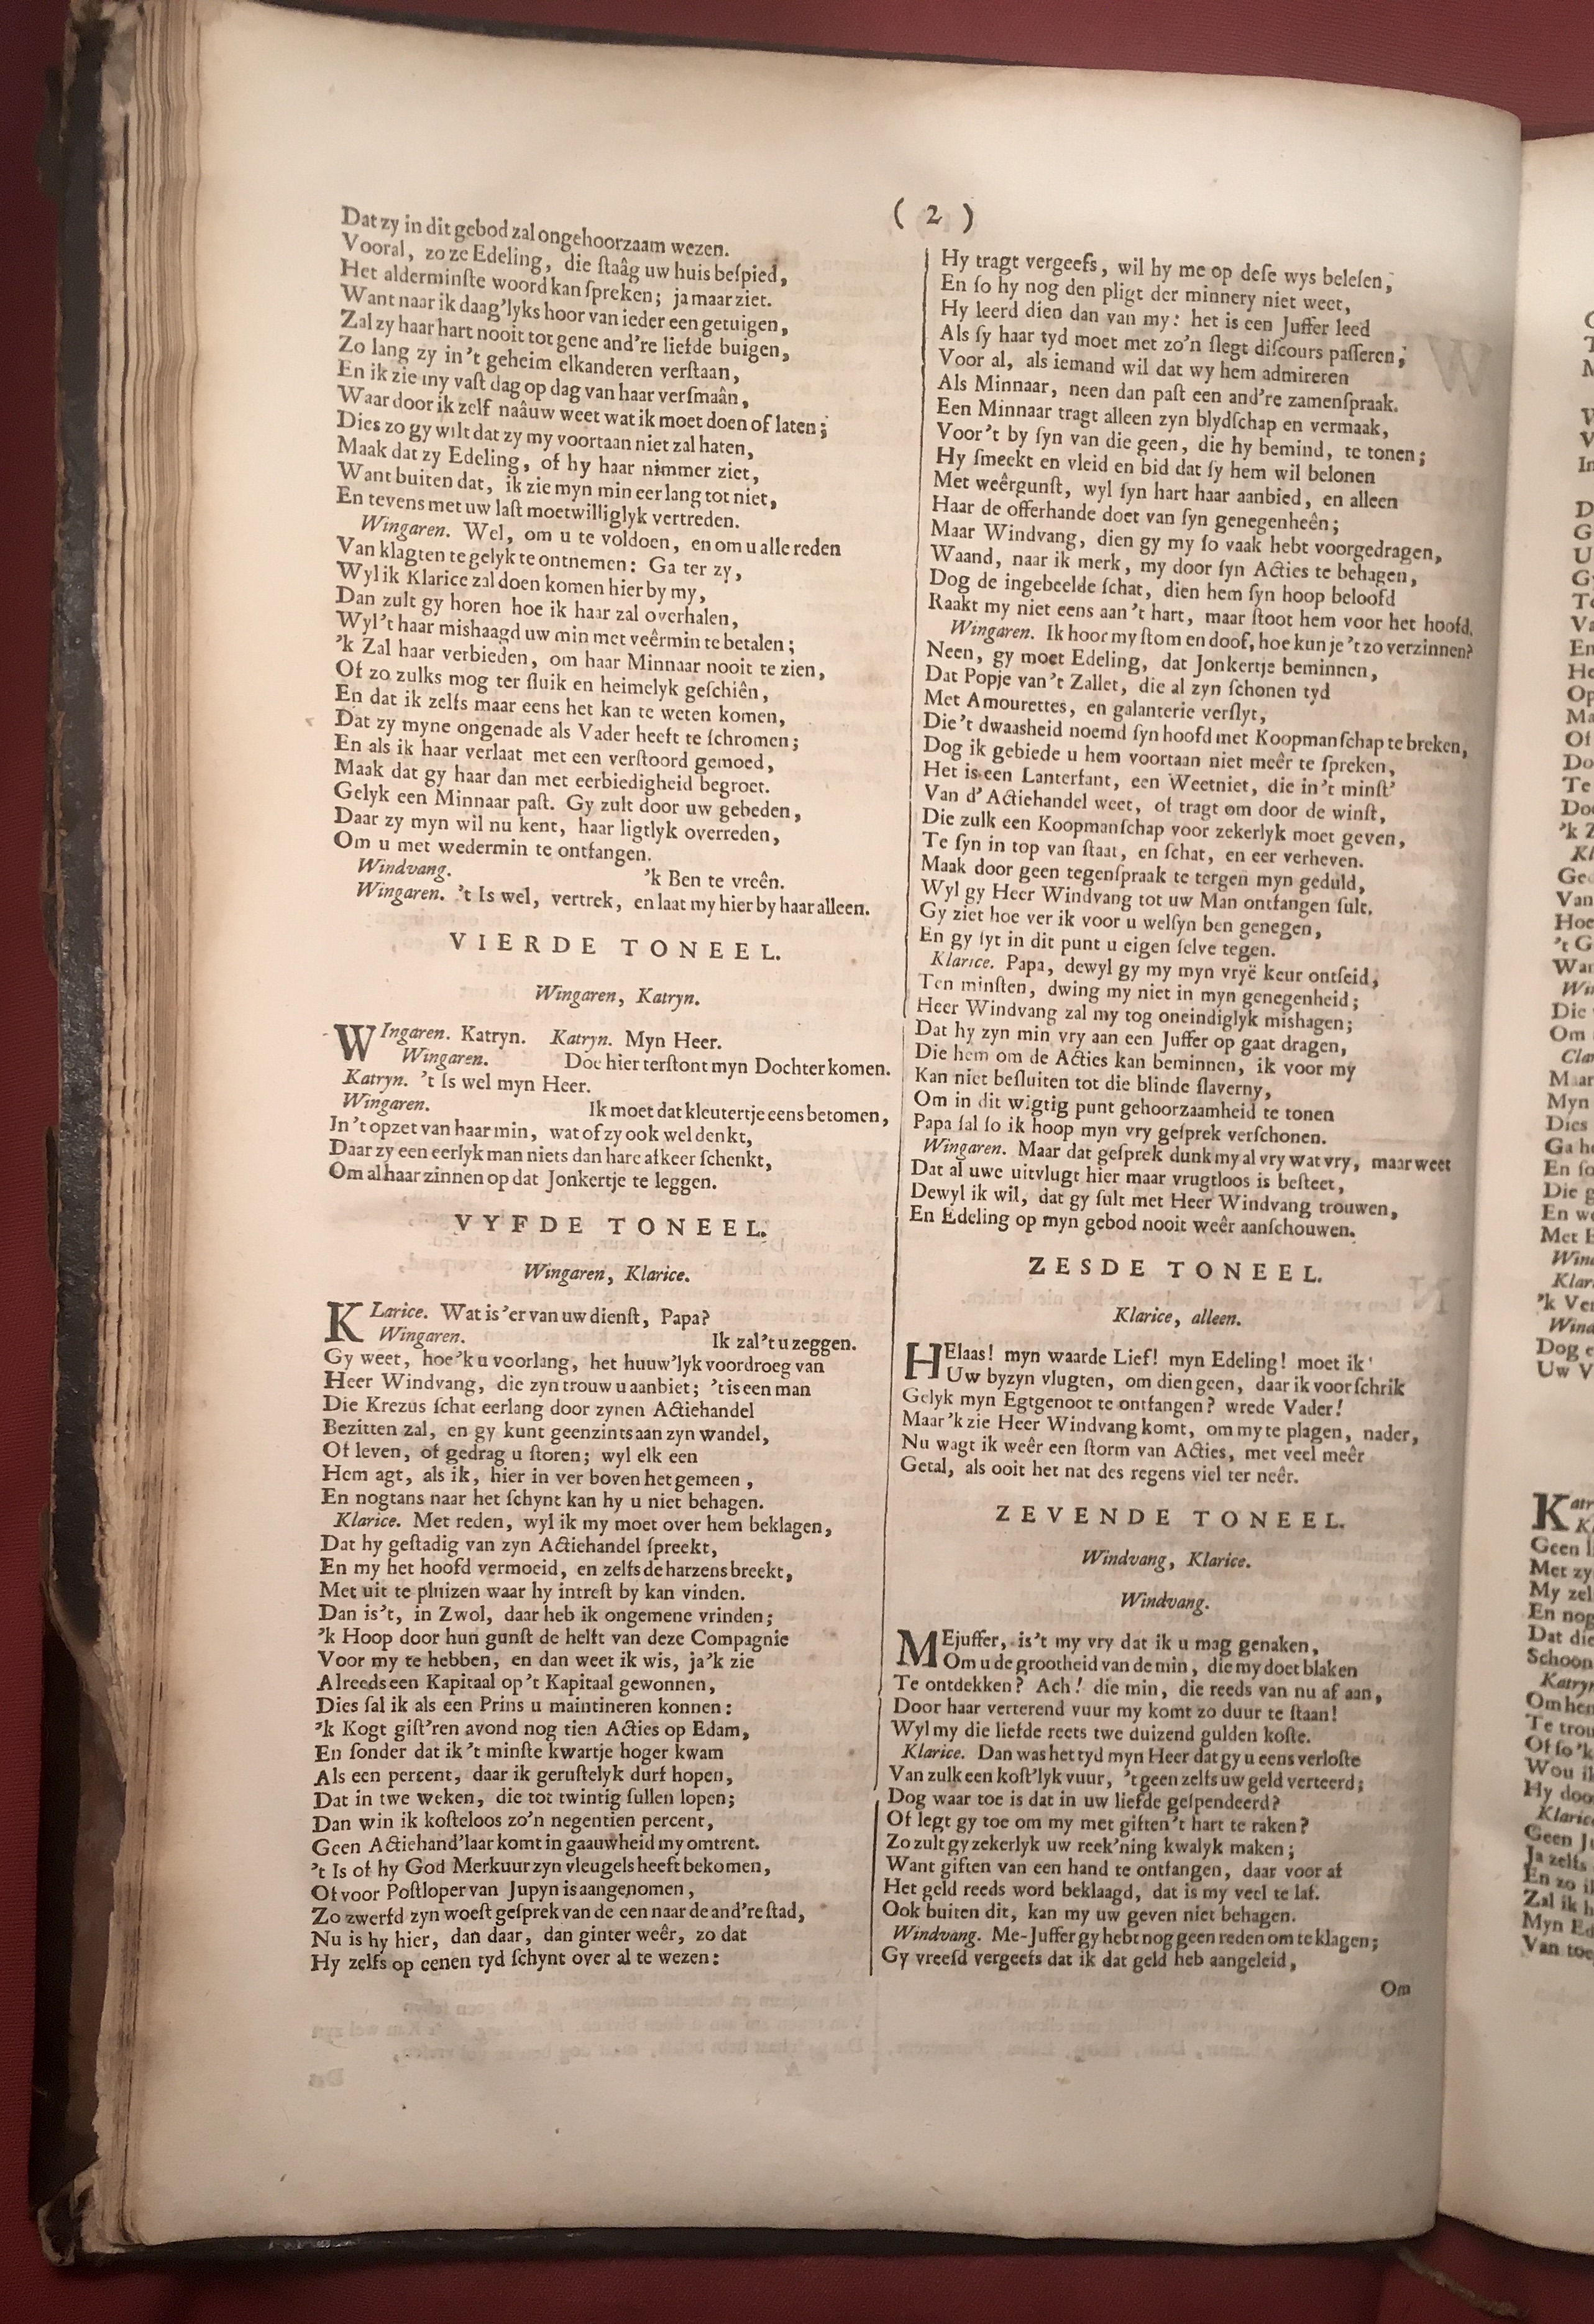 ( 2 )
Dat zy in dit gebod zal ongehoorzaam wezen.
Vooral, zo ze Edeling, die ſtaâg uw huis beſpied,
Het alderminſte woord kan ſpreken; ja maar ziet.
Want naar ik daag'lyks hoor van ieder een getuigen,
Zal zy haar hart nooit tot gene and're liefde buigen,
Zo lang zy in't geheim elkanderen verſtaan,
En ik zie my vaſt dag op dag van haar verſmaân,
Waar door ik zelf naâuw weet wat ik moet doen of laten;
Dies zo gy wilt dat zy my voortaan niet zal haten,
Maak dat zy Edeling, of hy haar nimmer ziet,
Want buiten dat, ik zie myn min eer lang tot niet,
En tevens met uw laſt moetwilliglyk vertreden.
Wingaren. Wel, om u te voldoen, en om u alle reden
Van klagten te gelyk te ontnemen: Ga ter zy,
Wyl ik Klarice zal doen komen hier by my,
Dan zult gy horen hoe ik haar zal overhalen,
Wyl't haar mishaagd uw min met veêrmin te betalen;
'k Zal haar verbieden, om haar Minnaar nooit te zien,
Of zo zulks mog ter ſluik en heimelyk geſchiên,
En dat ik zelfs maar eens het kan te weten komen,
Dat zy myne ongenade als Vader heeft te ſchromen;
En als ik haar verlaat met een verſtoord gemoed,
Maak dat gy haar dan met eerbiedigheid begroet.
Gelyk een Minnaar paſt. Gy zult door uw gebeden,
Daar zy myn wil nu kent, haar ligtlyk overreden,
Om u met wedermin te ontfangen.
Windvang. 'k Ben te vreên.
Wingaren. 't Is wel, vertrek, en laat my hier by haar alleen.
VIERDE TONEEL.
Wingaren, Katryn.
WIngaren. Katryn. Katryn. Myn Heer.
Wingaren. Doe hier terſtont myn Dochter komen.
Katryn. 't Is wel myn Heer.
Wingaren. Ik moet dat kleutertje eens betomen,
In't opzet van haar min, wat of zy ook wel denkt,
Daar zy een eerlyk man niets dan hare afkeer ſchenkt,
Om al haar zinnen op dat Jonkertje te leggen.
VYFDE TONEEL.
Wingaren, Klarice.
KLarice. Wat is 'er van uw dienſt, Papa?
Wingaren. Ik zal 't u zeggen.
Gy weet, hoe 'k u voorlang, het huuw'lyk voordroeg van
Heer Windvang, die zyn trouw u aanbiet; 't is een man
Die Krezus ſchat eerlang door zynen Actiehandel
Bezitten zal, en gy kunt geenzints aan zyn wandel,
Of leven, of gedrag u ſtoren; wyl elk een
Hem agt, als ik, hier in ver boven het gemeen,
En nogtans naar het ſchynt kan hy u niet behagen.
Klarice. Met reden, wyl ik my moet over hem beklagen,
Dat hy geſtadig van zyn Actiehandel ſpreekt,
En my het hoofd vermoeid, en zelfs de harzens breekt,
Met uit te pluizen waar hy intreſt by kan vinden.
Dan is't, in Zwol, daar heb ik ongemene vrinden;
'k Hoop door hun gunſt de helft van deze Compagnie
Voor my te hebben, en dan weet ik wis, ja 'k zie
Alreeds een Kapitaal op 't Kapitaal gewonnen,
Dies ſal ik als een Prins u maintineren konnen:
'k Kogt giſt'ren avond nog tien Acties op Edam,
En ſonder dat ik 't minſte kwartje hoger kwam
Als een percent, daar ik geruſtelyk durf hopen,
Dat in twe weken, die tot twintig ſullen lopen;
Dan win ik koſteloos zo'n negentien percent,
Geen Actiehand'laar komt in gaauwheid my omtrent.
't Is of hy God Merkuur zyn vleugels heeft bekomen,
Of voor Poſtloper van Jupyn is aangenomen,
Zo zwerfd zyn woeſt geſprek van de een naar de and're ſtad,
Nu is hy hier, dan daar, dan ginter weêr, zo dat
Hy zelfs op eenen tyd ſchynt over al te wezen:
Hy tragt vergeefs, wil hy me op deſe wys beleſen,
En ſo hy nog den pligt der minnery niet weet,
Hy leerd dien dan van my: het is een Juffer leed
Als ſy haar tyd moet met zo'n ſlegt diſcours paſſeren;
Voor al, als iemand wil dat wy hem admireren
Als Minnaar, neen dan paſt een and're zamenſpraak.
Een Minnaar tragt alleen zyn blydſchap en vermaak,
Voor't by ſyn van die geen, die hy bemind, te tonen;
Hy ſmeekt en vleid en bid dat ſy hem wil belonen
Met weêrgunſt, wyl ſyn hart haar aanbied, en alleen
Haar de offerhande doet van ſyn genegenheên;
Maar Windvang, dien gy my ſo vaak hebt voorgedragen,
Waand, naar ik merk, my door ſyn Acties te behagen,
Dog de ingebeelde ſchat, dien hem ſyn hoop beloofd
Raakt my niet eens aan 't hart, maar ſtoot hem voor het hoofd.
Wingaren. Ik hoor my ſtom en doof, hoe kun je 't zo verzinnen?
Neen, gy moet Edeling, dat Jonkertje beminnen,
Dat Popje van't Zallet, die al zyn ſchonen tyd
Met Amourettes, en galanterie verſlyt,
Die 't dwaasheid noemd ſyn hoofd met Koopmanſchap te breken,
Dog ik gebiede u hem voortaan niet meêr te ſpreken,
Het is een Lanterfant, een Weetniet, die in't minſt'
Van d' Actiehandel weet, of tragt om door de winſt,
Die zulk een Koopmanſchap voor zekerlyk moet geven,
Te ſyn in top van ſtaat, en ſchat, en eer verheven.
Maak door geen tegenſpraak te tergen myn geduld,
Wyl gy Heer Windvang tot uw Man ontfangen ſult.
Gy ziet hoe ver ik voor u welſyn ben genegen,
En gy ſyt in dit punt u eigen ſelve tegen.
Klarice. Papa, dewyl gy my myn vryë keur ontſeid,
Ten minſten, dwing my niet in myn genegenheid;
Heer Windvang zal my tog oneindiglyk mishagen;
Dat hy zyn min vry aan een Juffer op gaat dragen,
Die hem om de Acties kan beminnen, ik voor my
Kan niet beſluiten tot die blinde ſlaverny,
Om in dit wigtig punt gehoorzaamheid te tonen
Papa ſal ſo ik hoop myn vry geſprek verſchonen.
Wingaren. Maar dat geſprek dunk my al vry wat vry, maar weet
Dat al uwe uitvlugt hier maar vrugtloos is beſteet,
Dewyl ik wil, dat gy ſult met Heer Windvang trouwen,
En Edeling op myn gebod nooit weêr aanſchouwen.
ZESDE TONEEL.
Klarice, alleen.
HElaas! myn waarde Lief! myn Edeling! moet ik
Uw byzyn vlugten, om dien geen, daar ik voor ſchrik
Gelyk myn Egtgenoot te ontfangen? wrede Vader!
Maar 'k zie Heer Windvang komt, om my te plagen, nader,
Nu wagt ik weêr een ſtorm van Acties, met veel meêr
Getal, als ooit het nat des regens viel ter neêr.
ZEVENDE TONEEL.
Windvang, Klarice.
Windvang.
MEjuffer, is't my vry dat ik u mag genaken,
Om u de grootheid van de min, die my doet blaken
Te ontdekken? Ach! die min, die reeds van nu af aan,
Door haar verterend vuur my komt zo duur te ſtaan!
Wyl my die liefde reets twe duizend gulden koſte.
Klarice. Dan was het tyd myn Heer dat gy u eens verloſte
Van zulk een koſt'lyk vuur, 't geen zelfs uw geld verteerd;
Dog waar toe is dat in uw liefde geſpendeerd?
Of legt gy toe om my met giften't hart te raken?
Zo zult gy zekerlyk uw reek'ning kwalyk maken;
Want giften van een hand te ontfangen, daar voor af
Het geld reeds word beklaagd, dat is my veel te laf.
Ook buiten dit, kan my uw geven niet behagen.
Windvang. Me-Juffer gy hebt nog geen reden om te klagen;
Gy vreeſd vergeefs dat ik dat geld heb aangeleid,
Om